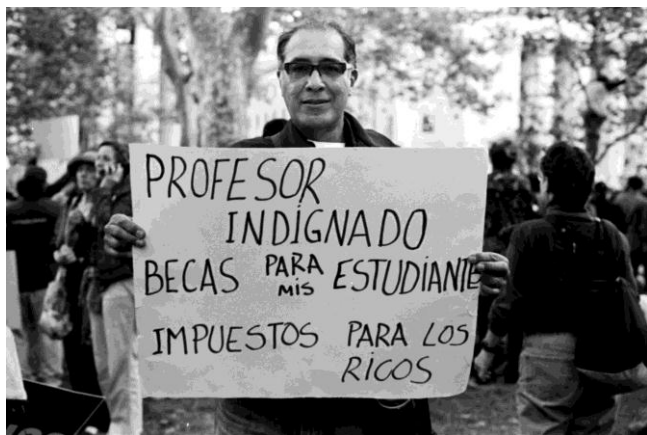 PROFESOR
INDIGNADO
BECAS PARA MIS ESTUDIANTE
IMPUESTOS PARA LOS
RICOS